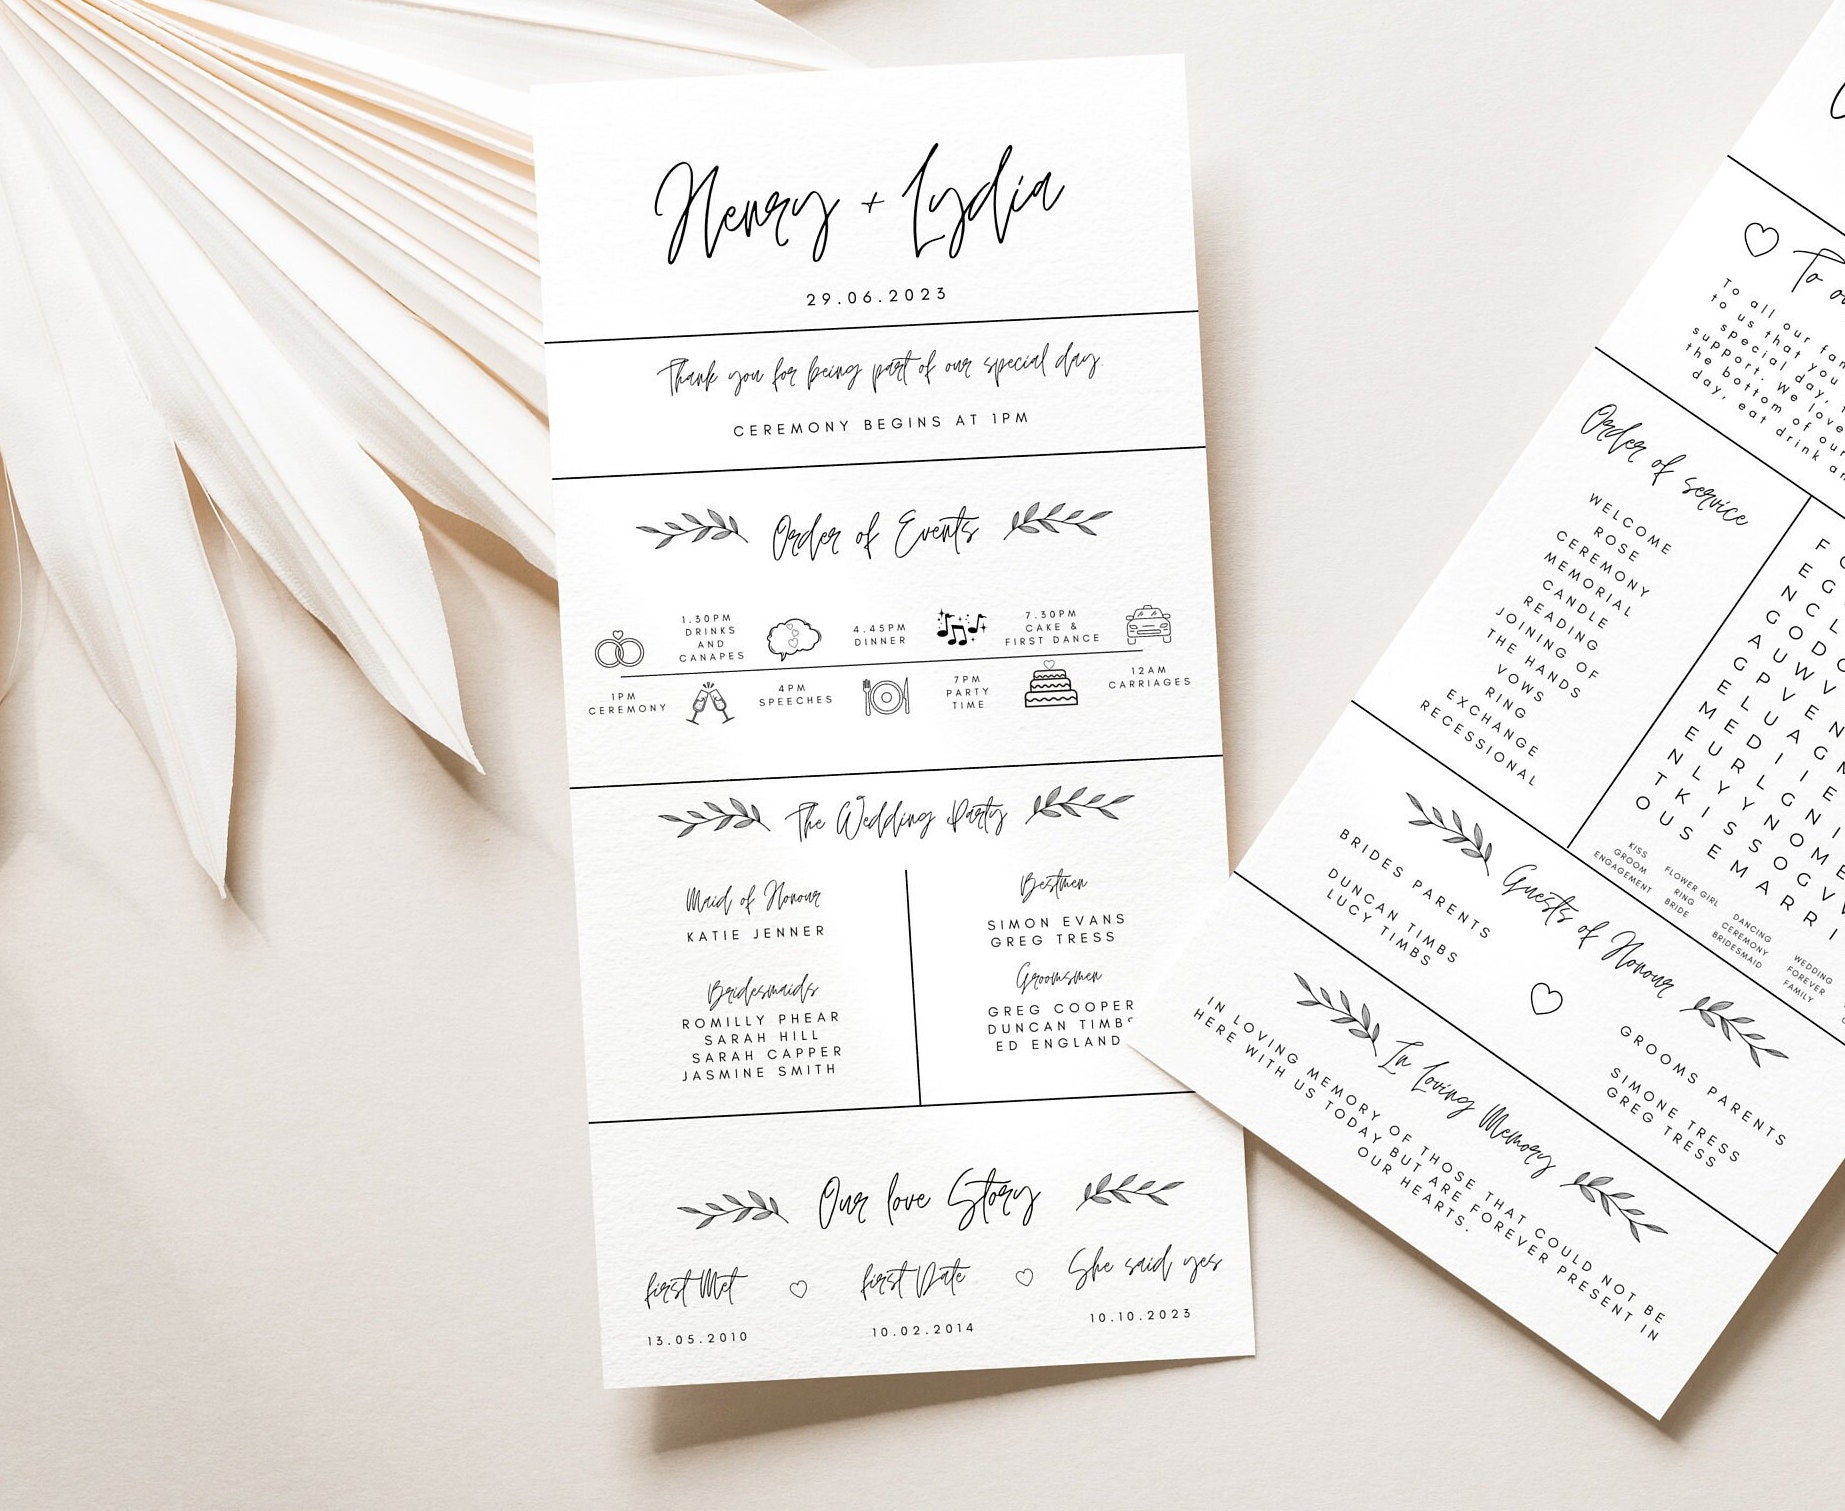 Henry + Lydia
29.06.2023
Thank you for being part of our special day.
CEREMONY BEGINS AT 1PM
Order of Events
1.30PM
DRINKS
AND
CANAPES
4.45PM
DINNER
7.30PM
CAKE &
FIRST DANCE
1PM
CEREMONY
4PM
SPEECHES
7PM
PARTY
TIME
12AM
CARRIAGES
The Wedding Party
Maid of Honour
KATIE JENNER
Bridesmaids
ROMILLY PHEAR
SARAH HILL
SARAH CAPPER
JASMINE SMITH
Bestmen
SIMON EVANS
GREG TRESS
Groomsmen
GREG COOPER
DUNCAN TIMBS
ED ENGLAND
Our love Story
first Met
13.05.2010
first Date
10.02.2014
She said yes
10.10.2023
To
To all our
to us that you
special day,
support. We love
the bottom of our
day, eat drink
Order of service
WELCOME
ROSE
CEREMONY
MEMORIAL
CANDLE
READING
JOINING OF
THE HANDS
VOWS
RING
EXCHANGE
RECESSIONAL
KISS
GROOM
ENGAGEMENT
FLOWER GIRL
RING
BRIDE
DANCING
CEREMONY
BRIDESMAID
WEDDING
FOREVER
FAMILY
Guests of Honour
BRIDES PARENTS
DUNCAN TIMBS
LUCY TIMBS
GROOMS PARENTS
SIMONE TRESS
GREG TRESS
In Loving Memory
IN LOVING MEMORY OF THOSE THAT COULD NOT BE
HERE WITH US TODAY BUT ARE FOREVER PRESENT IN
OUR HEARTS.